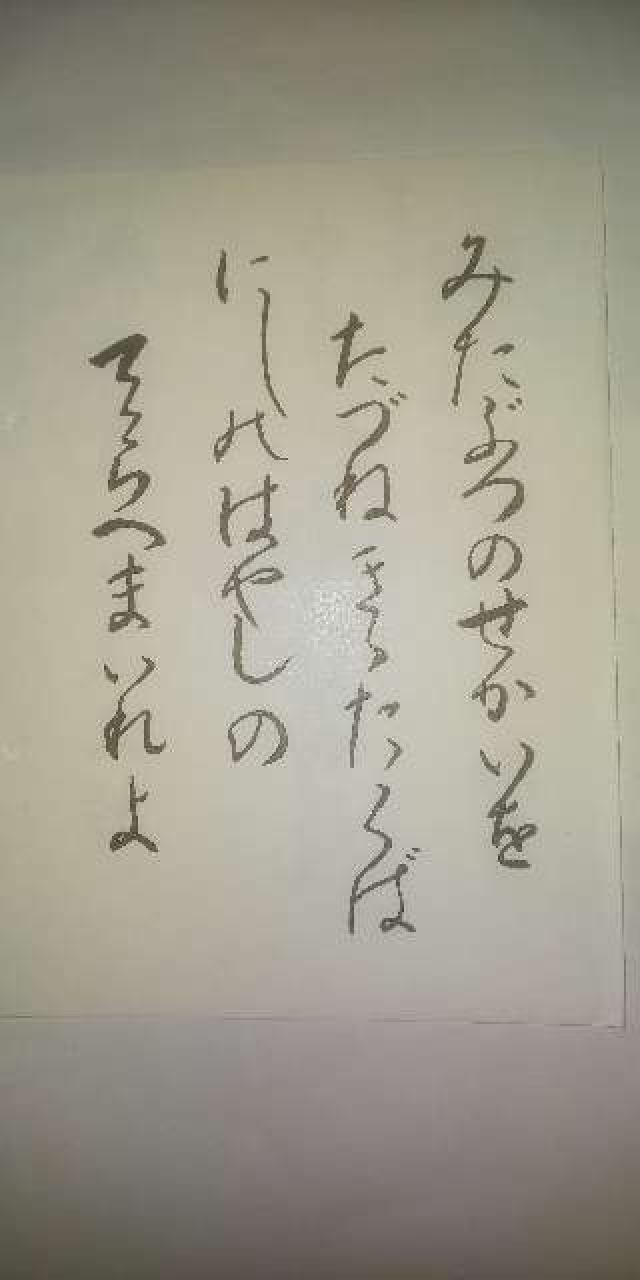 みたぶつのせかいを
たづねきかたくば
にしのはやしの
てらへまいれよ